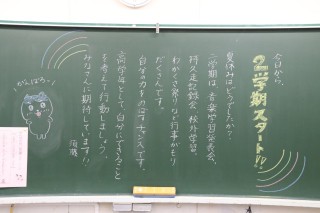 今日から、
2学期スタート!!
夏休みはどうでしたか?
二学期は、音楽学習発表会、
持久走記録会、校外学習、
わかくさ祭りなど行事がもり
だくさんです。
自分の力をのばすチャンスです。
高学年として、自分にできること
を考えて行動しましょう。
みなさんに期待しています!!
がんばろう!